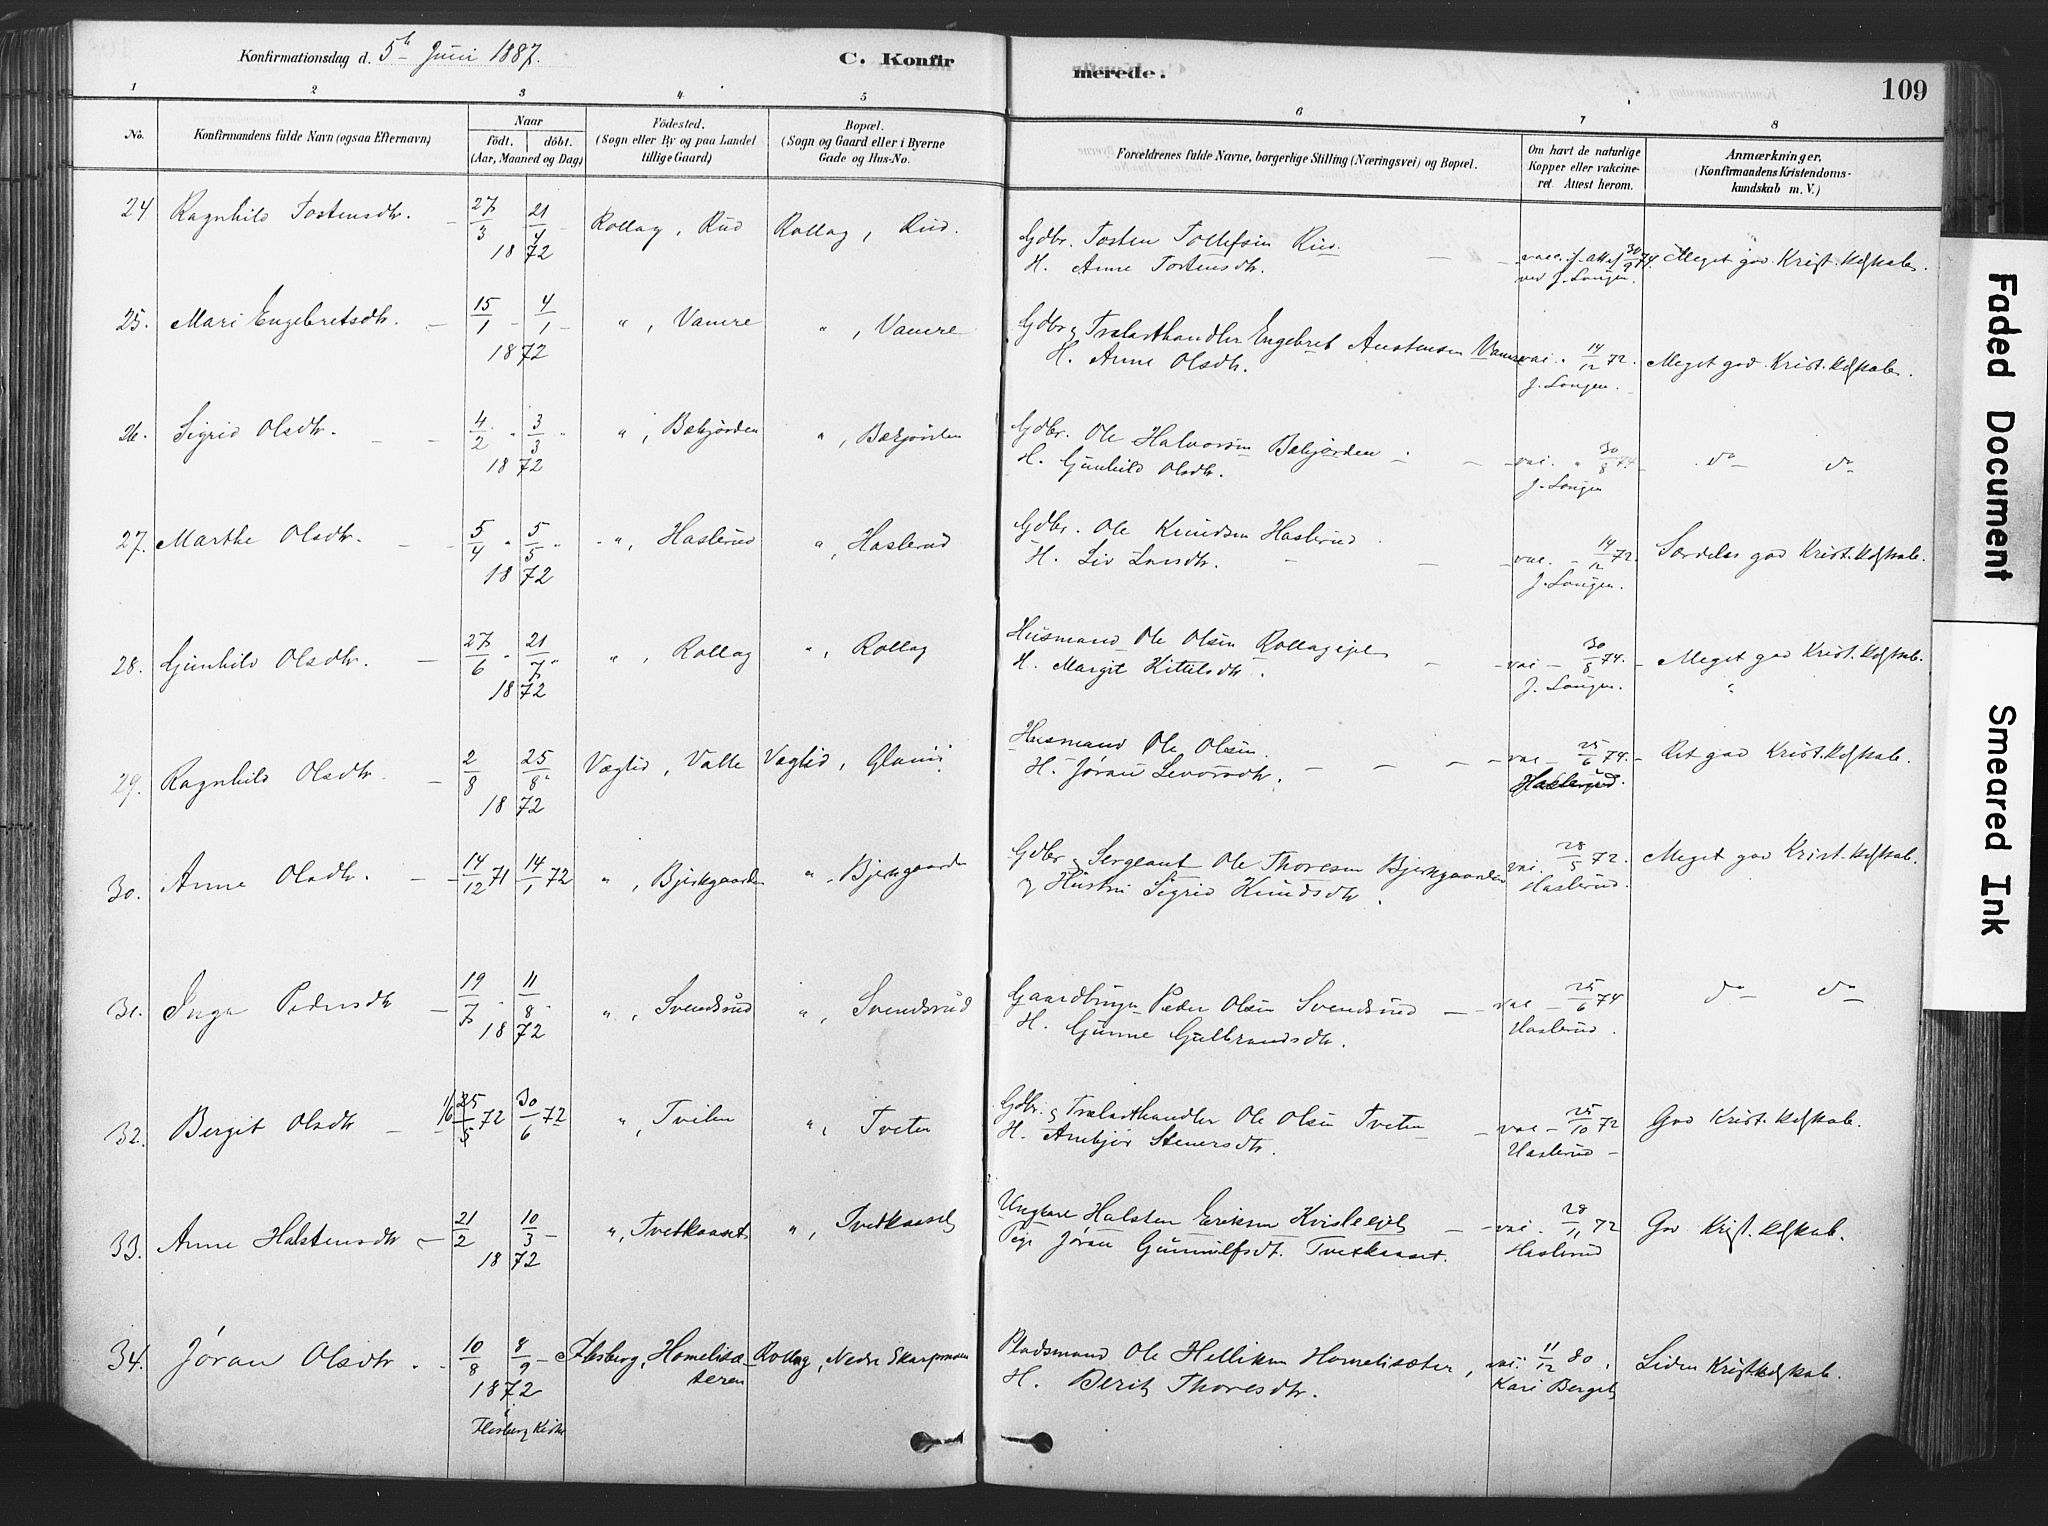 Konfirmationsdag d. 5te Juni 1887.
C. Konfirmerede.
109
1 2 3 4 5 6 7 8
No.
Konfirmandens fulde Navn (ogsaa Efternavn)
Naar
født. døbt.
(Aar, Maaned og Dag)
Fødested.
(Sogn eller By og paa Landet
tillige Gaard)
Bopæl.
(Sogn og Gaard eller i Byerne
Gade og Hus-No.
Forældrenes fulde Navne, borgerlige Stilling (Næringsvei) og Bopæl.
Om havt de naturlige
Kopper eller vakcine-
ret. Attest herom.
Anmærkninger.
(Konfirmandens Kristendoms-
kundskab m. V.)
24 Ragnhild Tostensdtr. 27/3 21/4 1872 Rollag, Rud Rollag, Rud.
Gdbr. Tosten Tollefsen Rud
H. Anne Tostensdtr.
vacc. f. att. af 30/9 74. ved J. Songen.
Meget god Krist.kdskab.
25. Mari Engebretsdtr. 15/1 4/1 1872 ", Vamre ", Vamre
Gdbr. & Trælasthandler Engebret Austensen Vamre
H. Anne Olsdtr.
vac. " 14/12 72. J. Songen.
Meget god Krist.kdskab.
26. Sigrid Olsdtr. 4/2 3/3 1872 ", Bækjorden ", Bækjorden
Gdbr. Ole Halvorsen Bækjorden
H. Gunhild Olsdtr.
vac. " 30/8 74. J. Songen
do do
27. Marthe Olsdtr. 5/4 5/5 1872 ", Haslerud ", Haslerud
Gdbr. Ole Knudsen Haslerud
H. Liv Larsdtr.
vac. 14/12 72 J. Songen.
Særdeles god Krist.kdskab.
28. Gunhild Olsdtr. 27/6 21/7 1872 ", Rollag ", Rollag
Husmand Ole Olsen Rollagseje
H. Margit Kittelsdtr.
vac 30/8 74. J. Songen.
Meget god Krist.kdskab.
29. Ragnhild Olsdtr. 2/8 25/8 1872 Væglid, Valle Væglid,
Husmand Ole Olsen
H. Jøran Levorsdtr.
vac 25/6 74. Haslerud.
Ret god Krist.kdskab.
30. Anne Olsdtr. 14/12 71 14/1 72 ", Bjerkgaarden ", Bjerkgaarden
Gdbr & Sergeant Ole Thoresen Bjerkgaarden
& Hustru Sigrid Knudsdtr.
vac. 28/5 72. Haslerud.
Meget god Krist.kdskab.
31. Inga Pedersdtr 19/7 11/8 1872 ", Svendsrud ", Svendsrud
Gaardbruger Peder Olsen Svendsrud
H. Gunne Gulbrandsdtr.
vac 25/6 74 Haslerud.
do do
32. Bergit Olsdtr 11/6 25/5 72 30/6 72 ", Tveten ", Tveten
Gdbr. & Trælasthandler Ole Olsen Tveten
H. Anbjør Stenersdtr.
vac 25/10 72 Haslerud
God Krist.kdskab.
33. Anne Halstensdtr 21/2 10/3 1872 ", Tvetkaaset ", Tvetkaaset
Ungkarl Halsten Eriksen Kvisleeiet
Pige Jøran Gunnulfsdt. Tvetkaaset.
vac. 28/11 72 Haslerud
God Krist.kdskab.
34. Jøran Olsdtr 10/8 8/9 1872 Flesberg, Homelisæteren Rollag, Nedre Skarpmoen
i Flesberg Kirke
Pladsmand Ole Helliksen Homelisæter,
H. Berit Thoresdtr.
vac. 11/12 80. Kari Berget
Liden Kristkdskab.
Faded Document
Smeared Ink